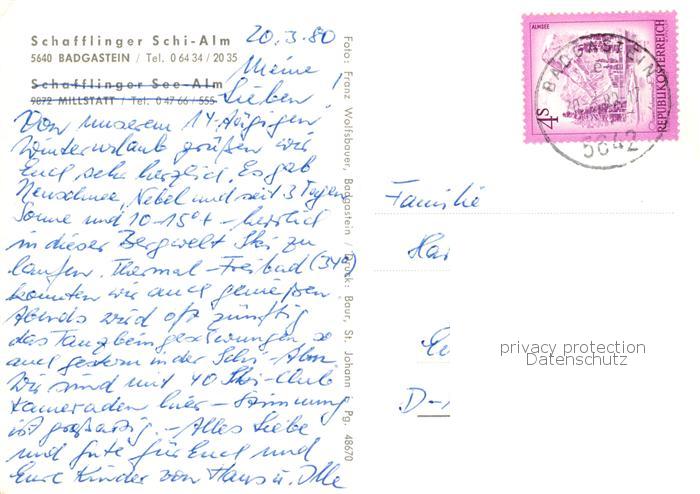 Schafflinger Schi-Alm
5640 BADGASTEIN / Tel. 0 64 34 / 20 35
Schafflinger See-Alm
9872 MILLSTATT / Tel. 0 47 66 / 555
20.3.80
Meine
Lieben!
Von unserem 14-tägigen
Winterurlaub grüßen wir
Euch sehr herzlich. Es gab
Neuschnee, Nebel und seit 3 Tagen
Sonne und 10-15°+ - herrlich
in dieser Bergwelt Ski zu
laufen. Thermal-Freibad (34°)
konnten wir auch genießen.
Abends wird oft zünftig
das Tanzbein geschwungen so
auch gestern in der Schi-Alm
Wir sind mit 40 Ski-Club
Kameraden hier - Stimmung
ist großartig. - Alles Liebe
und Gute für Euch und
Eure Kinder von Hans u.
Foto: Franz Wolfsbauer, Badgastein / Druck: Baur, St. Johann i. Pg. 48670
ALMSEE
4S
REPUBLIK ÖSTERREICH
BADGASTEIN
5642
Familie
Har
D-
privacy protection
Datenschutz